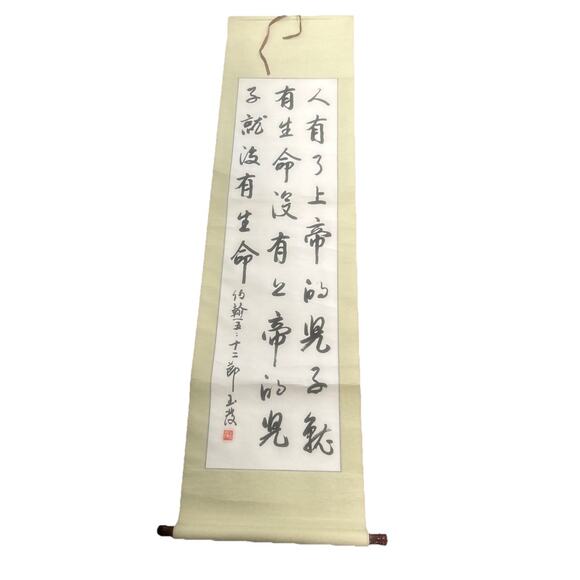 人有了上帝的兒子就
有生命沒有上帝的兒
子就沒有生命
約翰一五:十二節玉發